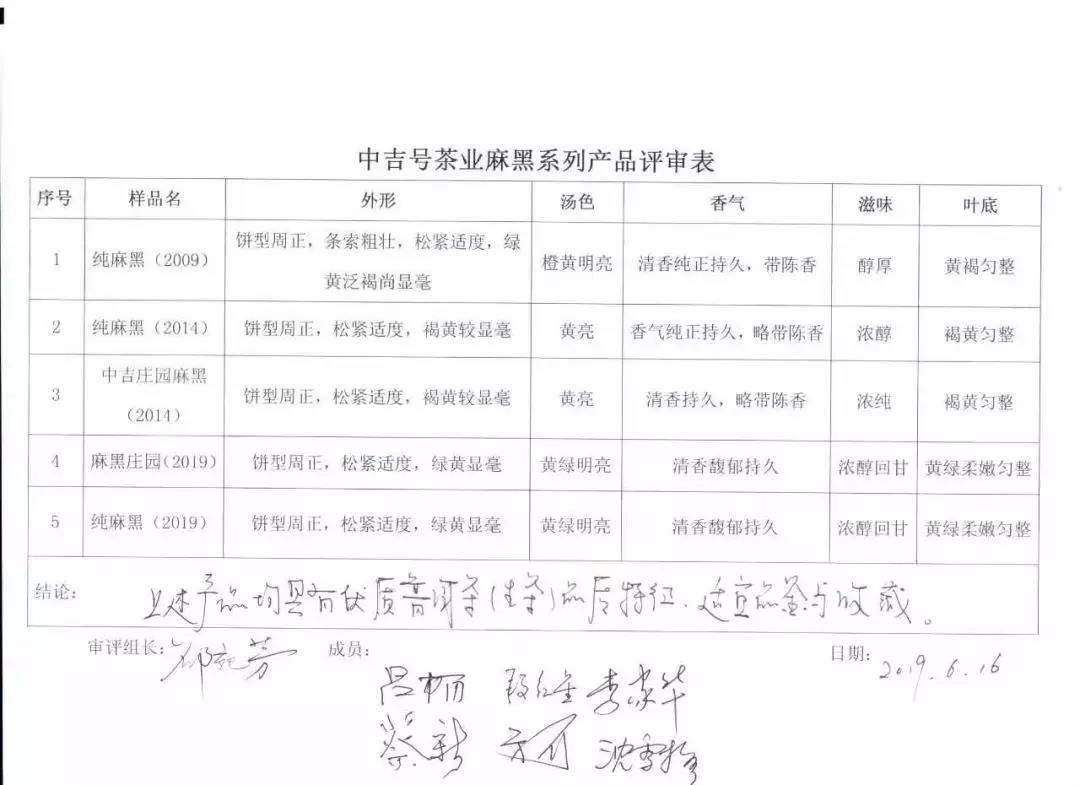 中吉号茶业麻黑系列产品评审表
序号 样品名 外形 汤色 香气 滋味 叶底
1 纯麻黑（2009） 饼型周正，条索粗壮，松紧适度，绿黄泛褐尚显毫 橙黄明亮 清香纯正持久，带陈香 醇厚 黄褐匀整
2 纯麻黑（2014） 饼型周正，松紧适度，褐黄较显毫 黄亮 香气纯正持久，略带陈香 浓醇 褐黄匀整
3 中吉庄园麻黑（2014） 饼型周正，松紧适度，褐黄较显毫 黄亮 清香持久，略带陈香 浓纯 褐黄匀整
4 麻黑庄园(2019) 饼型周正，松紧适度，绿黄显毫 黄绿明亮 清香馥郁持久 浓醇回甘 黄绿柔嫩匀整
5 纯麻黑（2019） 饼型周正，松紧适度，绿黄显毫 黄绿明亮 清香馥郁持久 浓醇回甘 黄绿柔嫩匀整
结论： 上述产品均具有优质普洱茶(生茶)品质特征、适宜品鉴与收藏。
审评组长： 成员： 日期： 2019.6.16
吕 李家华
蔡新 方可